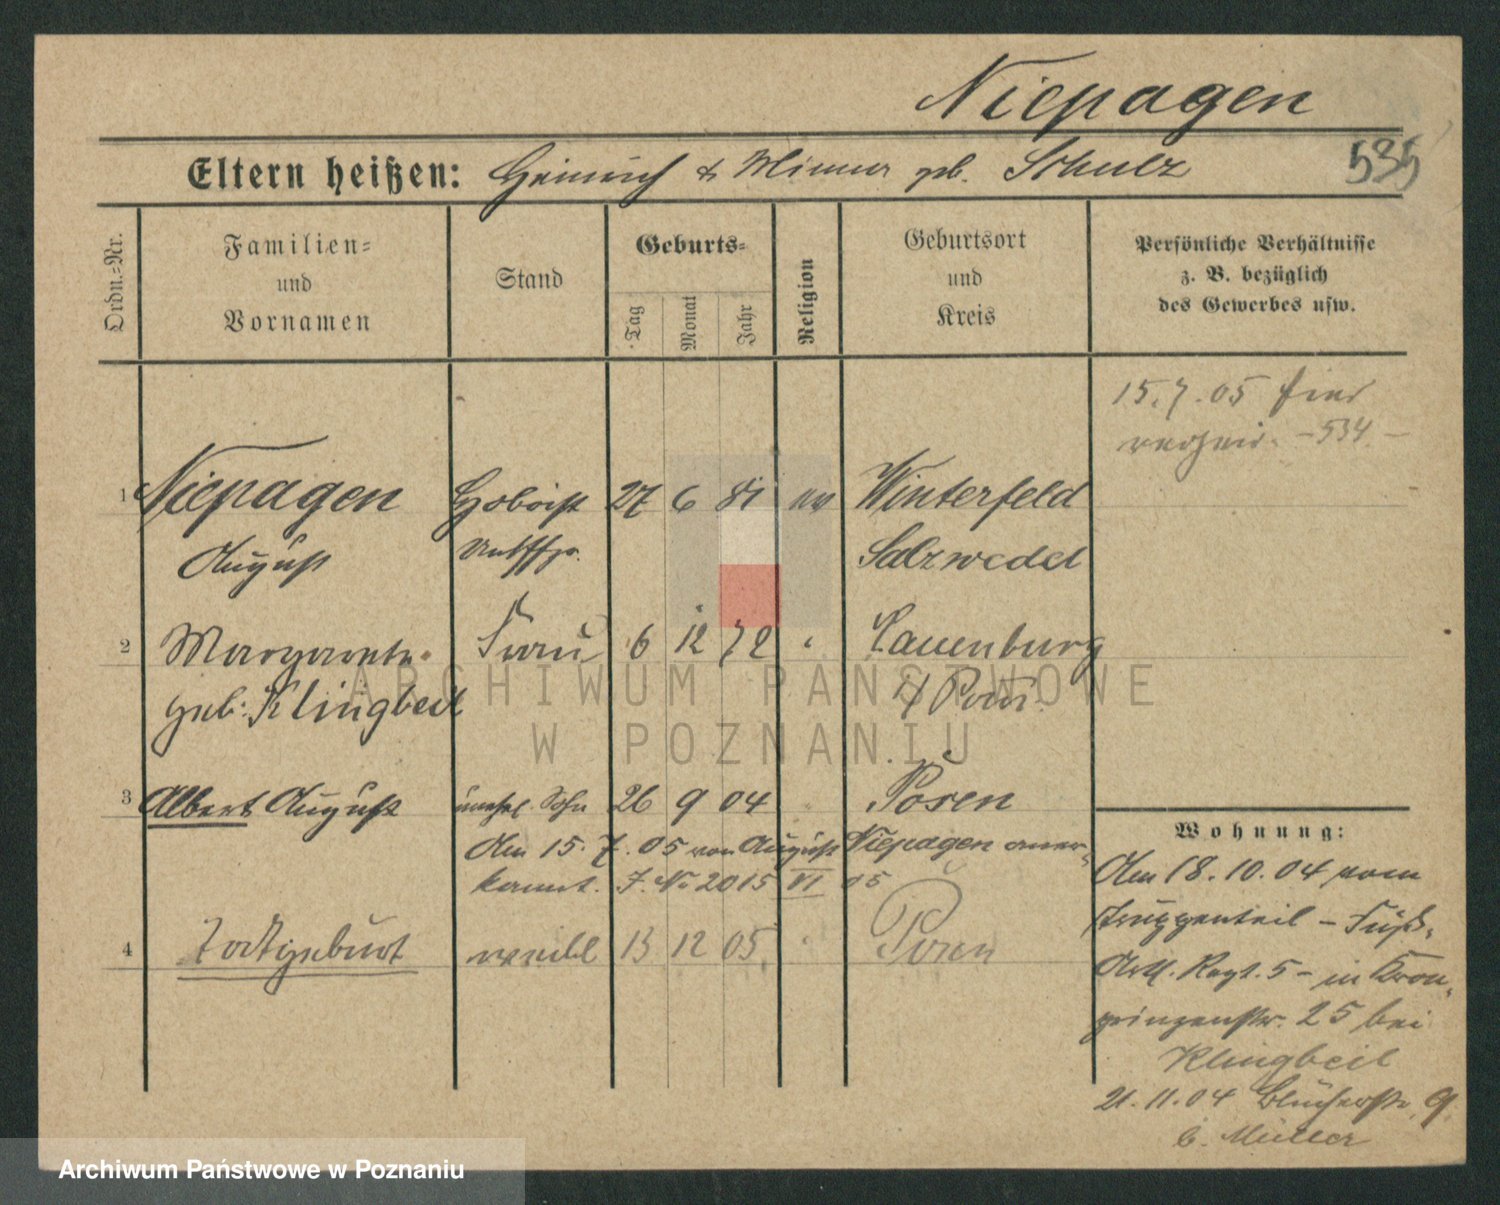 Niepagen
Eltern heißen: Heinrich & Minna geb. Schulz
535
Ordn.=Nr.
Familien=
und
Vornamen
Stand
Geburts=
Tag
Monat
Jahr
Religion
Geburtsort
und
Kreis
Persönliche Verhältnisse
z. B. bezüglich
des Gewerbes usw.
15.7.05 hier
verheir. -534-
1 Niepagen Hoboist 27 6 81 ev Winterfeld
August Salzwedel
2 Margarete Frau 6 12 72 Lauenburg
geb. Klingbeil i/Pom.
3 Albert August unehel. Sohn 26 9 04 Posen
Am 15.7.05 von August Niepagen aner-
kannt. J. No 2015 VI 05
4 Todtgeburt weibl 13 12 05 Posen
Wohnung:
Am 18.10.04 vom
Truppenteil - Fuß-
Art. Regt. 5 - in Kron-
prinzenstr. 25 bei
Klingbeil
21.11.04 Blücherstr. 9
b. Müller
ARCHIWUM PAŃSTWOWE
W POZNANIU
Archiwum Państwowe w Poznaniu